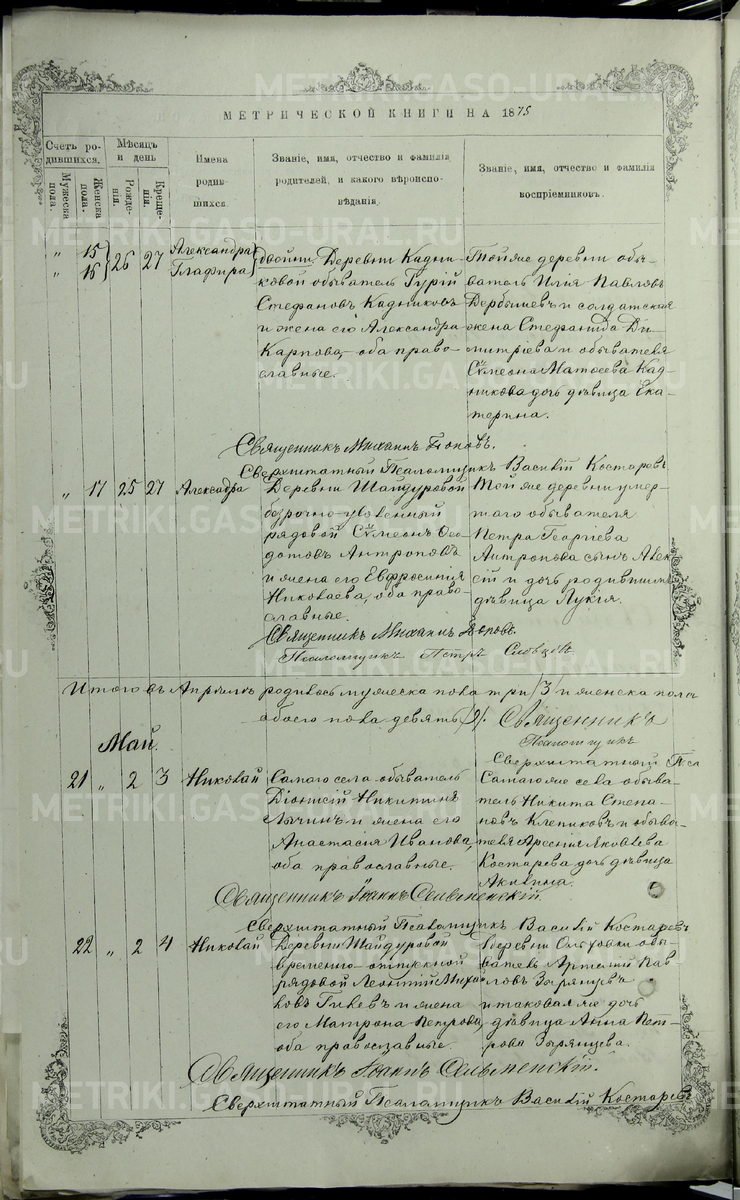 МЕТРИЧЕСКОЙ КНИГИ НА 1875
Счетъ ро-
дившихся.
Мужеска
пола.
Женска
пола.
Мѣсяцъ
и день
Рожде-
нія.
Креще-
нія.
Имена
родив-
шихся.
Званіе, имя, отчество и фамилія
родителей, и какого вѣроиспо-
вѣданія.
Званіе, имя, отчество и фамилія
воспріемниковъ.
" 15
" 16
26 27
Александра
Глафира
двойни. Деревни Кадни-
ковой обыватель Гурій
Стефановъ Кадниковъ
и жена его Александра
Карпова, оба право-
славные.
Той же деревни обы-
ватель Илія Павловъ
Дербышевъ и солдатская
жена Стефанида Ди-
митріева и обывателя
Сѵмеона Матѳеева Кад-
никова дочь дѣвица Ека-
терина.
Священникъ Михаилъ Поповъ.
Сверхштатный Псаломщикъ Василій Костаревъ
" 17 25 27 Александра
Деревни Шайдуровой
безрочно-уволенный
рядовой Сѵмеонъ Ѳео-
дотовъ Антроповъ
и жена его Евфросинія
Николаева, оба право-
славные.
Той же деревни умер-
шаго обывателя
Петра Георгіева
Антропова сынъ Алек-
сій и дочь родившихъ
дѣвица Лукія.
Священникъ Михаилъ Поповъ.
Псаломщикъ Петръ Словцовъ
Итого въ Апрѣлѣ родилось мужеска пола три /3/ и женска пола
обоего пола девять /9/. Священникъ
Псаломщикъ
Сверхштатный Пса
Май.
21 " 2 3 Николай
Самаго села обыватель
Діонисій Никитинъ
Лычинъ и жена его
Анастасія Иванова,
оба православные.
Самаго же села обыва-
тель Никита Степа-
новъ Клепиковъ и обыва-
теля Арсенія Яковлева
Костарева дочь дѣвица
Акилина.
Священникъ Іоаннъ
Сверхштатный Псаломщикъ Василій Костаревъ
22 " 2 4 Николай
Деревни Шайдуровой
временно-отпускной
рядовой Леонтій Михай-
ловъ и жена
его Матрона Петрова,
оба православные.
Деревни Ольховки обы-
ватель Артемій Пав-
ловъ Зырянцевъ
и таковая же дочь
дѣвица Анна Пет-
рова Зырянцева.
Священникъ Іоаннъ
Сверхштатный Псаломщикъ Василій Костаревъ
METRIKI.GASO-URAL.RU